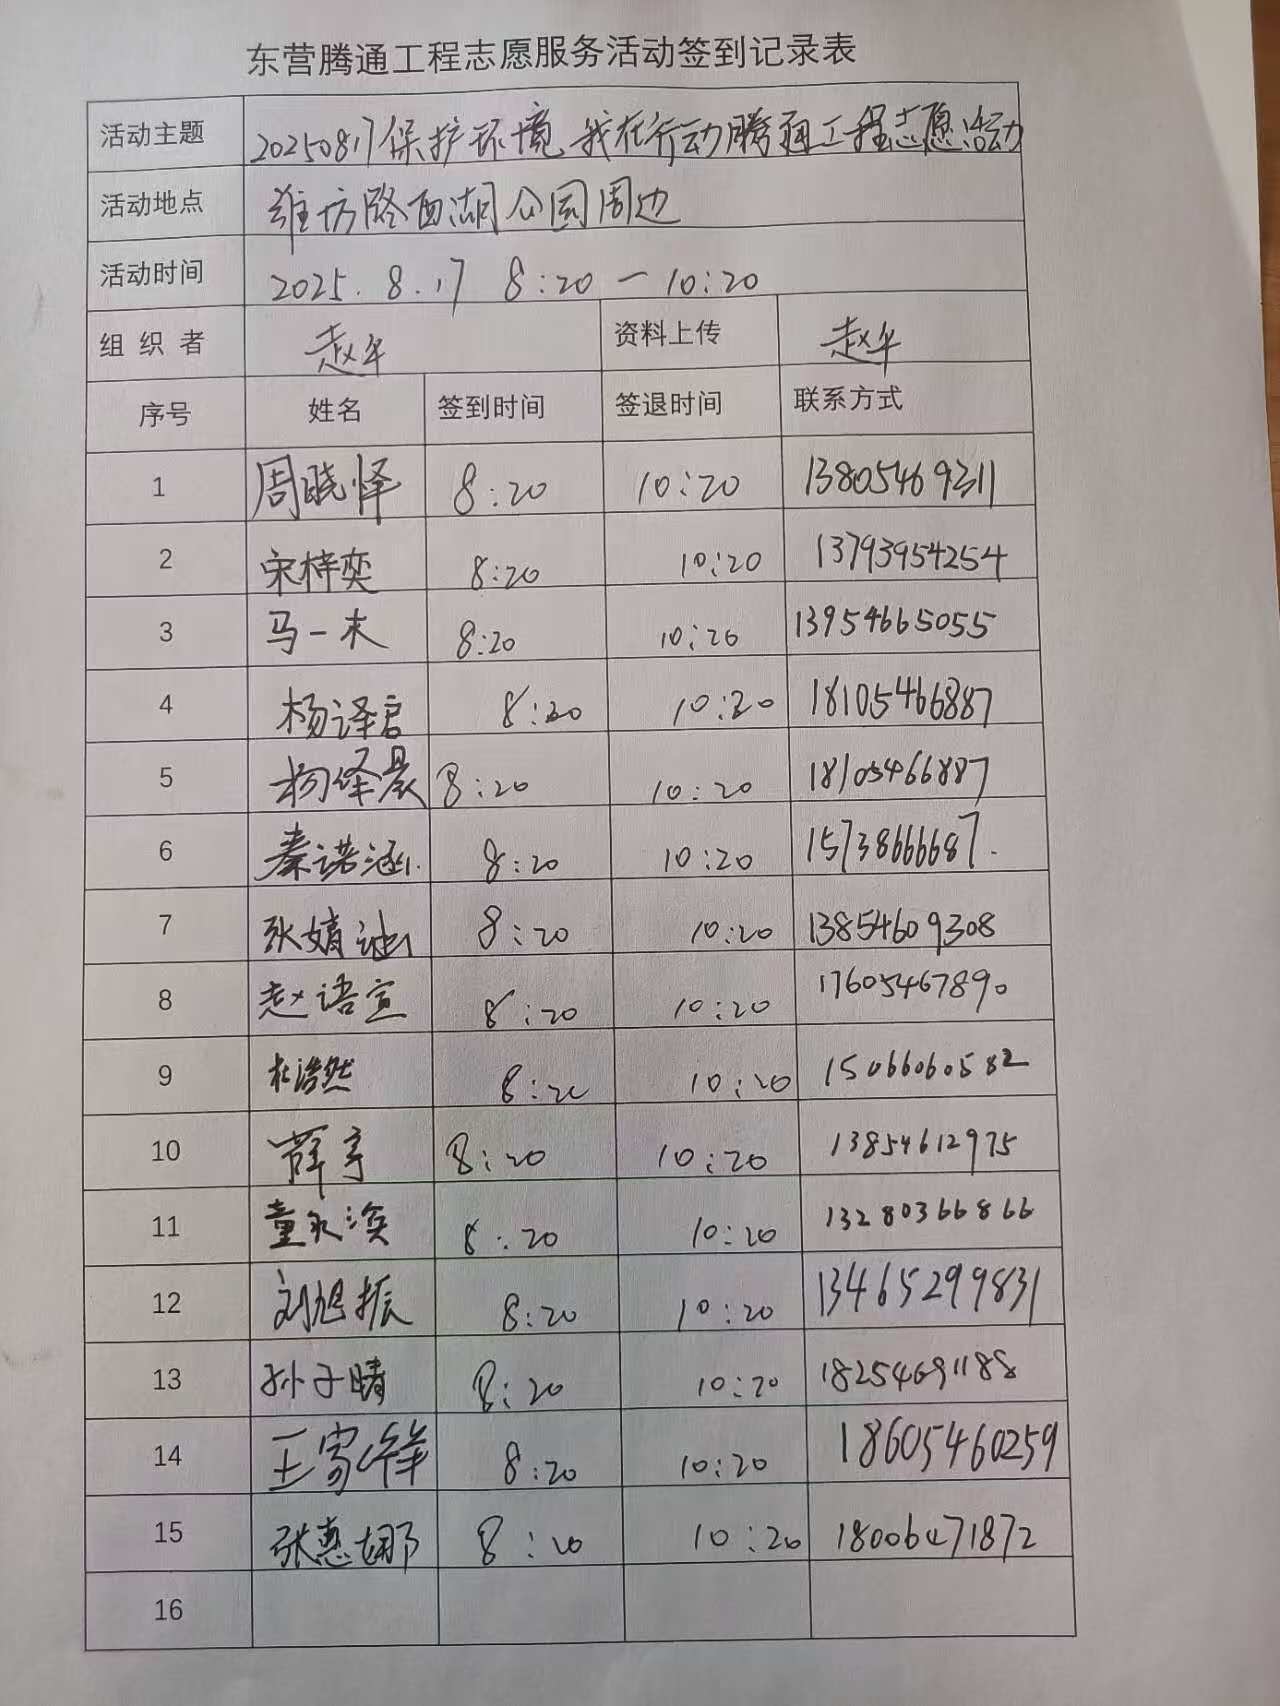 东营腾通工程志愿服务活动签到记录表
活动主题 20250817保护环境 我在行动腾通工程志愿活动
活动地点 潍坊路西湖公园周边
活动时间 2025.8.17 8:20一10:20
组织者 赵华 资料上传 赵华
序号 姓名 签到时间 签退时间 联系方式
1 周晓怿 8:20 10:20 13805469311
2 宋梓奕 8:20 10:20 13793954254
3 马一木 8:20 10:20 13954665055
4 杨译启 8:20 10:20 18105466887
5 杨绎晨 8:20 10:20 18105466887
6 秦诺涵 8:20 10:20 15738666687.
7 张婧 8:20 10:20 13854609308
8 赵语宣 8:20 10:20 17605467890
9 杜浩然 8:20 10:20 15066060582
10 薛亨 8:20 10:20 13854612975
11 童永涣 8:20 10:20 13280366866
12 刘旭振 8:20 10:20 13465299831
13 孙子晴 8:20 10:20 18254691188
14 王家 8:20 10:20 18605460259
15 张惠娜 8:20 10:20 18006471872
16